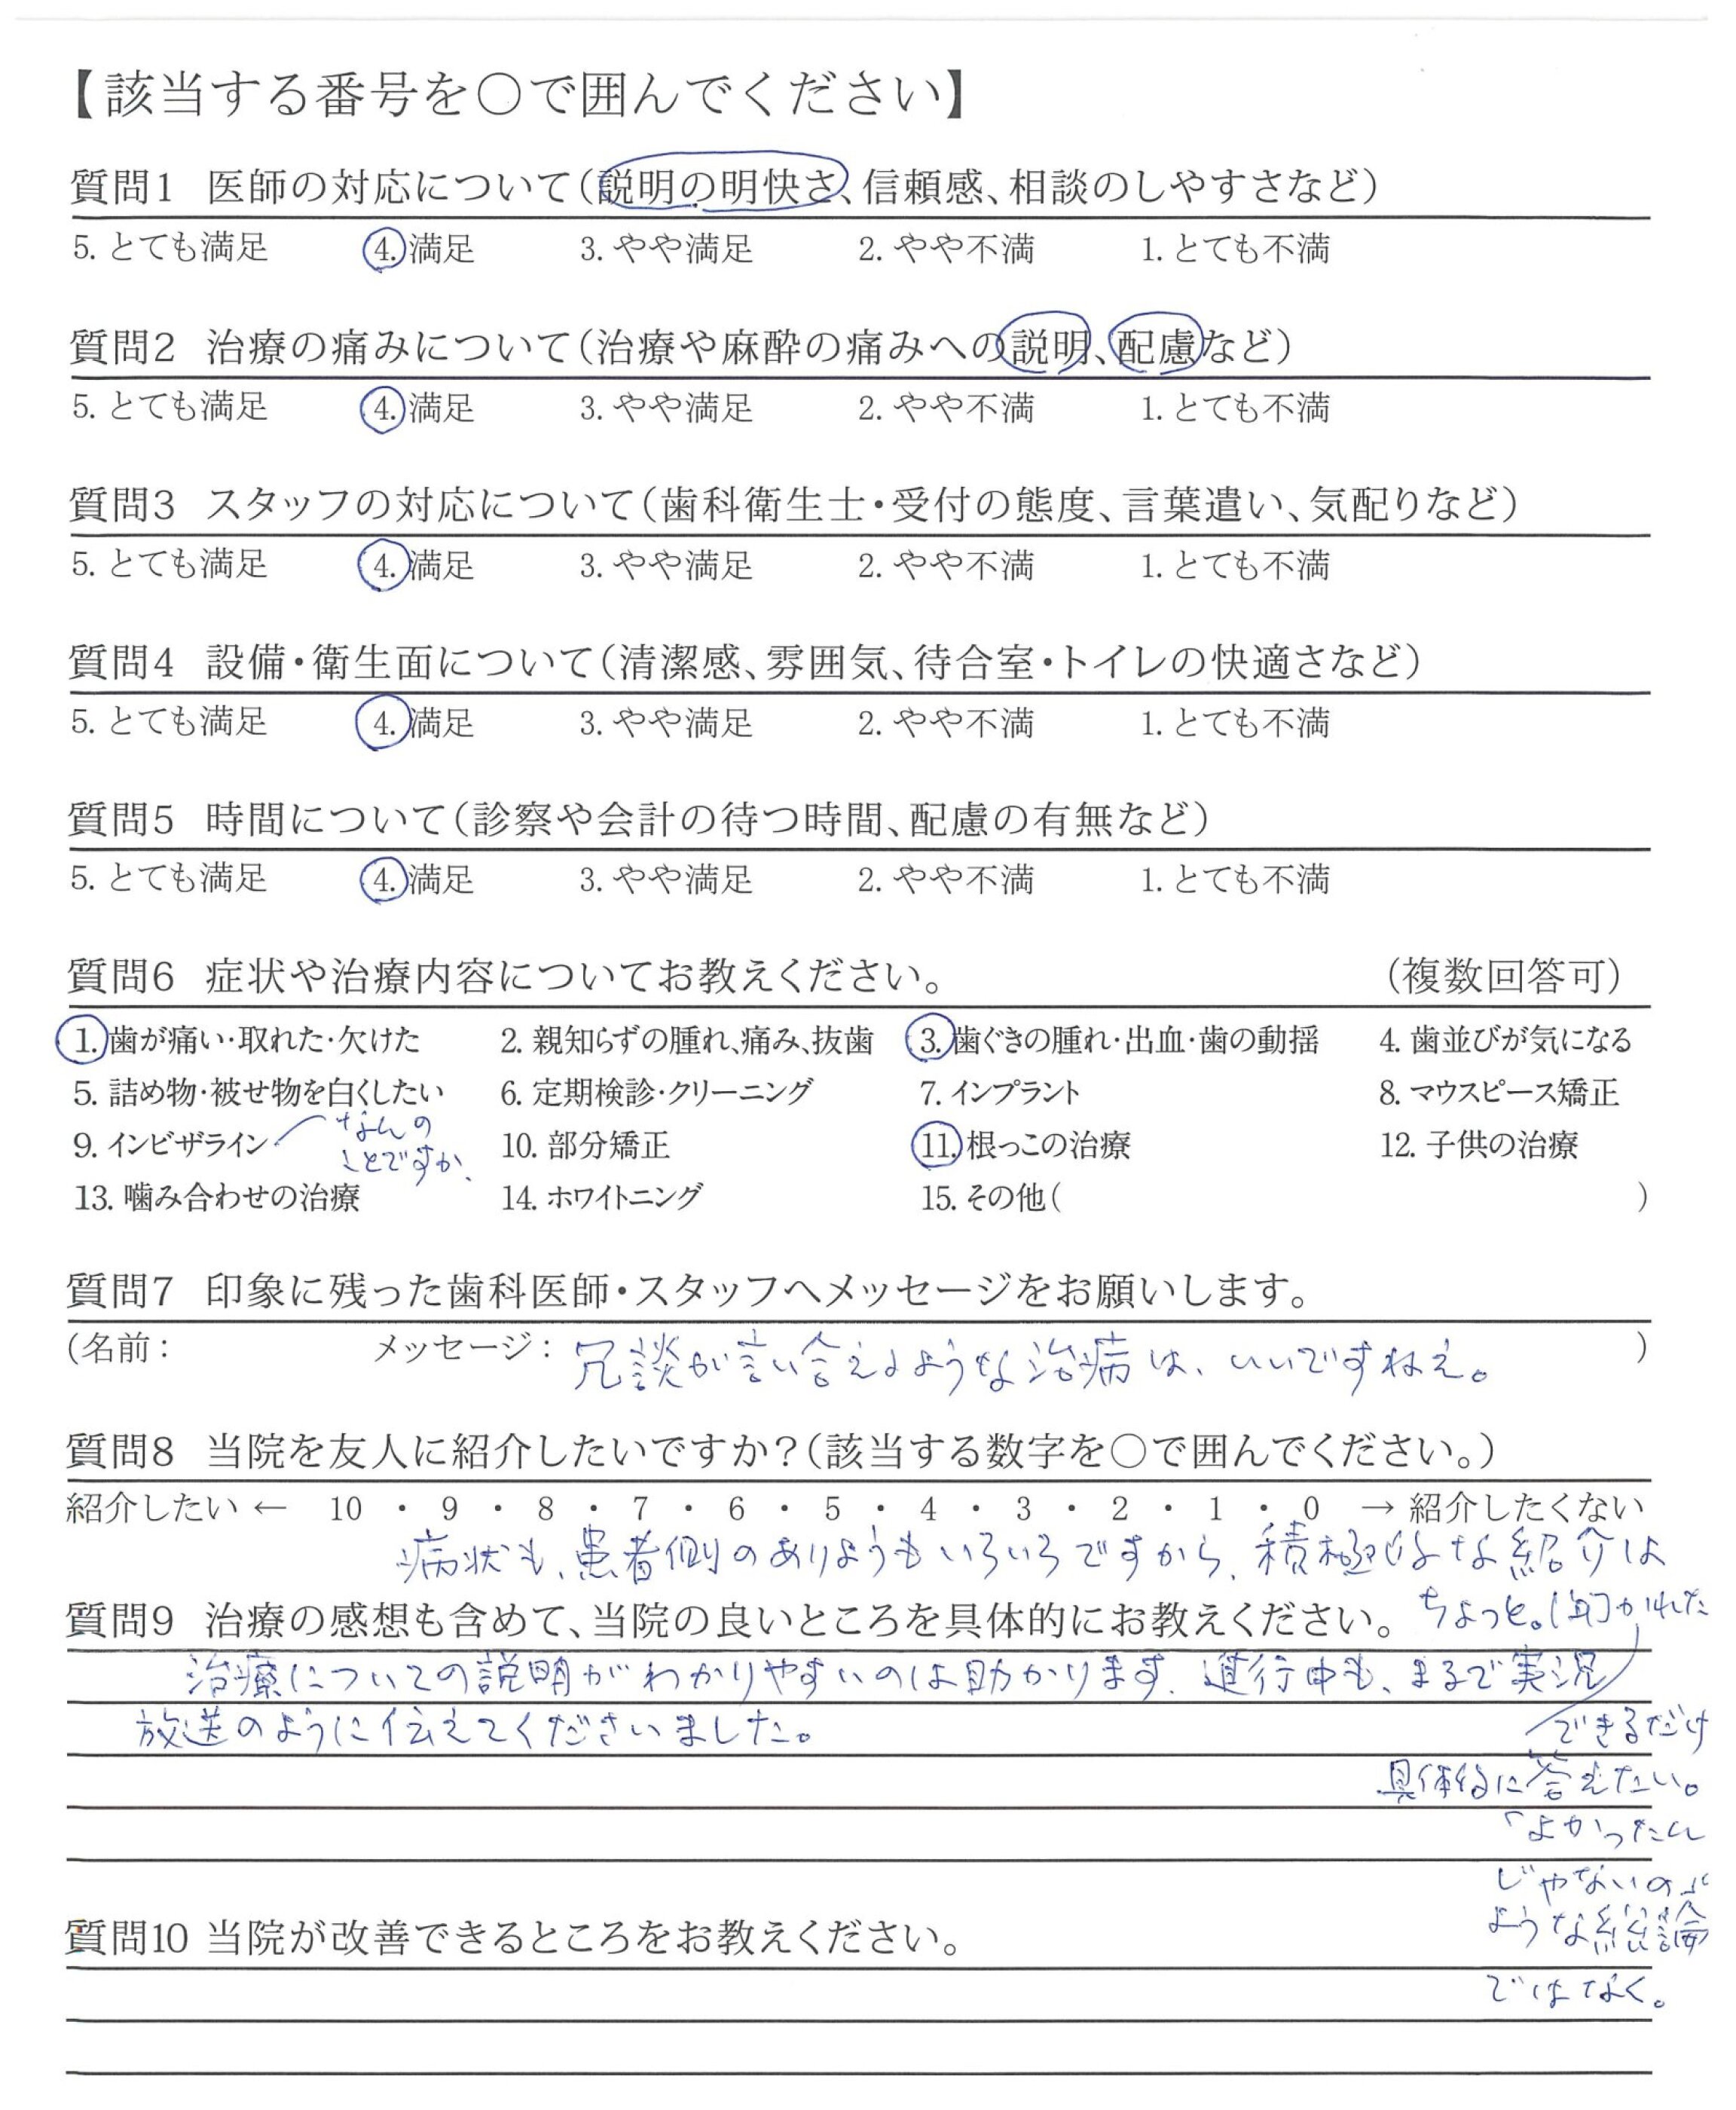 【該当する番号を○で囲んでください】
質問1 医師の対応について(説明の明快さ、信頼感、相談のしやすさなど)
5. とても満足 4. 満足 3. やや満足 2. やや不満 1. とても不満
質問2 治療の痛みについて(治療や麻酔の痛みへの説明、配慮など)
5. とても満足 4. 満足 3. やや満足 2. やや不満 1. とても不満
質問3 スタッフの対応について(歯科衛生士・受付の態度、言葉遣い、気配りなど)
5. とても満足 4. 満足 3. やや満足 2. やや不満 1. とても不満
質問4 設備・衛生面について(清潔感、雰囲気、待合室・トイレの快適さなど)
5. とても満足 4. 満足 3. やや満足 2. やや不満 1. とても不満
質問5 時間について(診察や会計の待つ時間、配慮の有無など)
5. とても満足 4. 満足 3. やや満足 2. やや不満 1. とても不満
質問6 症状や治療内容についてお教えください。 (複数回答可)
1. 歯が痛い・取れた・欠けた 2. 親知らずの腫れ、痛み、抜歯 3. 歯ぐきの腫れ・出血・歯の動揺 4. 歯並びが気になる
5. 詰め物・被せ物を白くしたい 6. 定期検診・クリーニング 7. インプラント 8. マウスピース矯正
9. インビザライン なんの 10. 部分矯正 11. 根っこの治療 12. 子供の治療
ことですか、
13. 噛み合わせの治療 14. ホワイトニング 15. その他( )
質問7 印象に残った歯科医師・スタッフへメッセージをお願いします。
(名前: メッセージ: 冗談が言い合えるような治病は、いいですねえ。 )
質問8 当院を友人に紹介したいですか?(該当する数字を○で囲んでください。)
紹介したい ← 10 ・ 9 ・ 8 ・ 7 ・ 6 ・ 5 ・ 4 ・ 3 ・ 2 ・ 1 ・ 0 → 紹介したくない
病状も、患者側のありようもいろいろですから、積極的な紹介は
ちょっと。 かれた
質問9 治療の感想も含めて、当院の良いところを具体的にお教えください。
治療についての説明がわかりやすいのは助かります。進行中も、まるで実況
放送のように伝えてくださいました。
できるだけ
具体的に答えたい。
「よかったん
じゃないの」
ような総論
ではなく。
質問10 当院が改善できるところをお教えください。